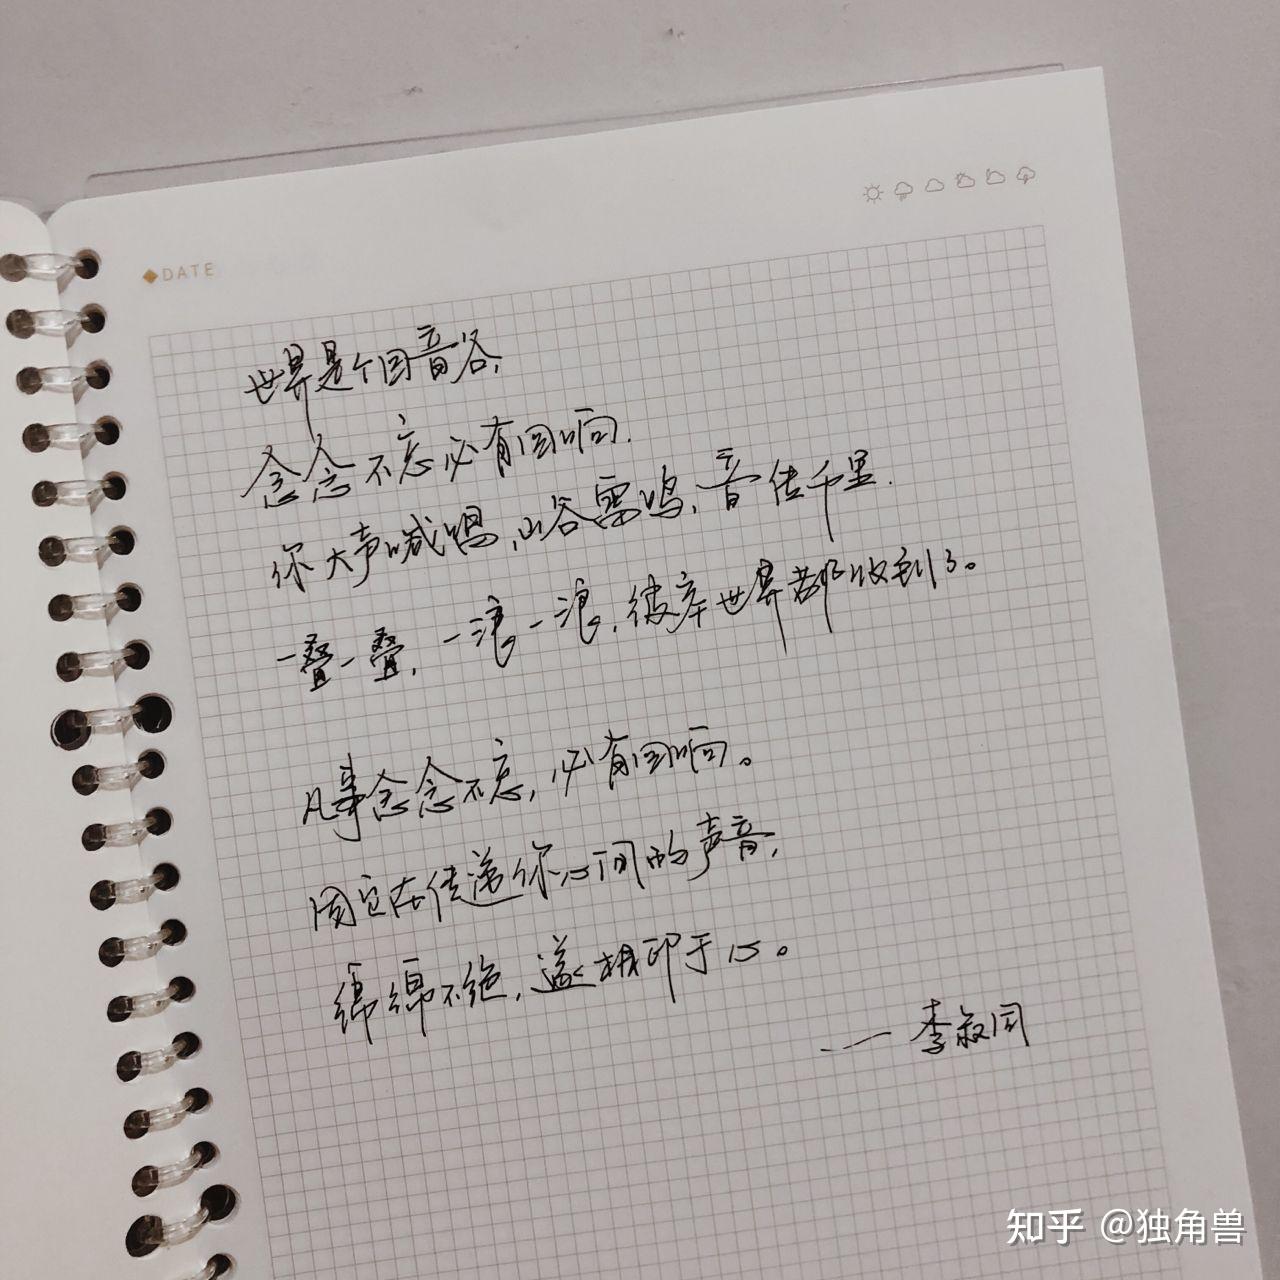 DATE
世界是个回音谷,
念念不忘必有回响.
你大声喊唱,山谷雷鸣,音传千里.
一叠一叠,一浪一浪,彼岸世界都收到了。
凡事念念不忘,必有回响。
因它在传递你心间的声音,
绵绵不绝,遂相印于心。
——李叔同
知乎 @独角兽